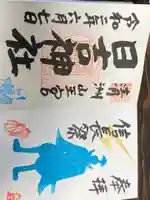 令和二年六月七日
日吉神社
清洲山王宮
信長祭
奉拝